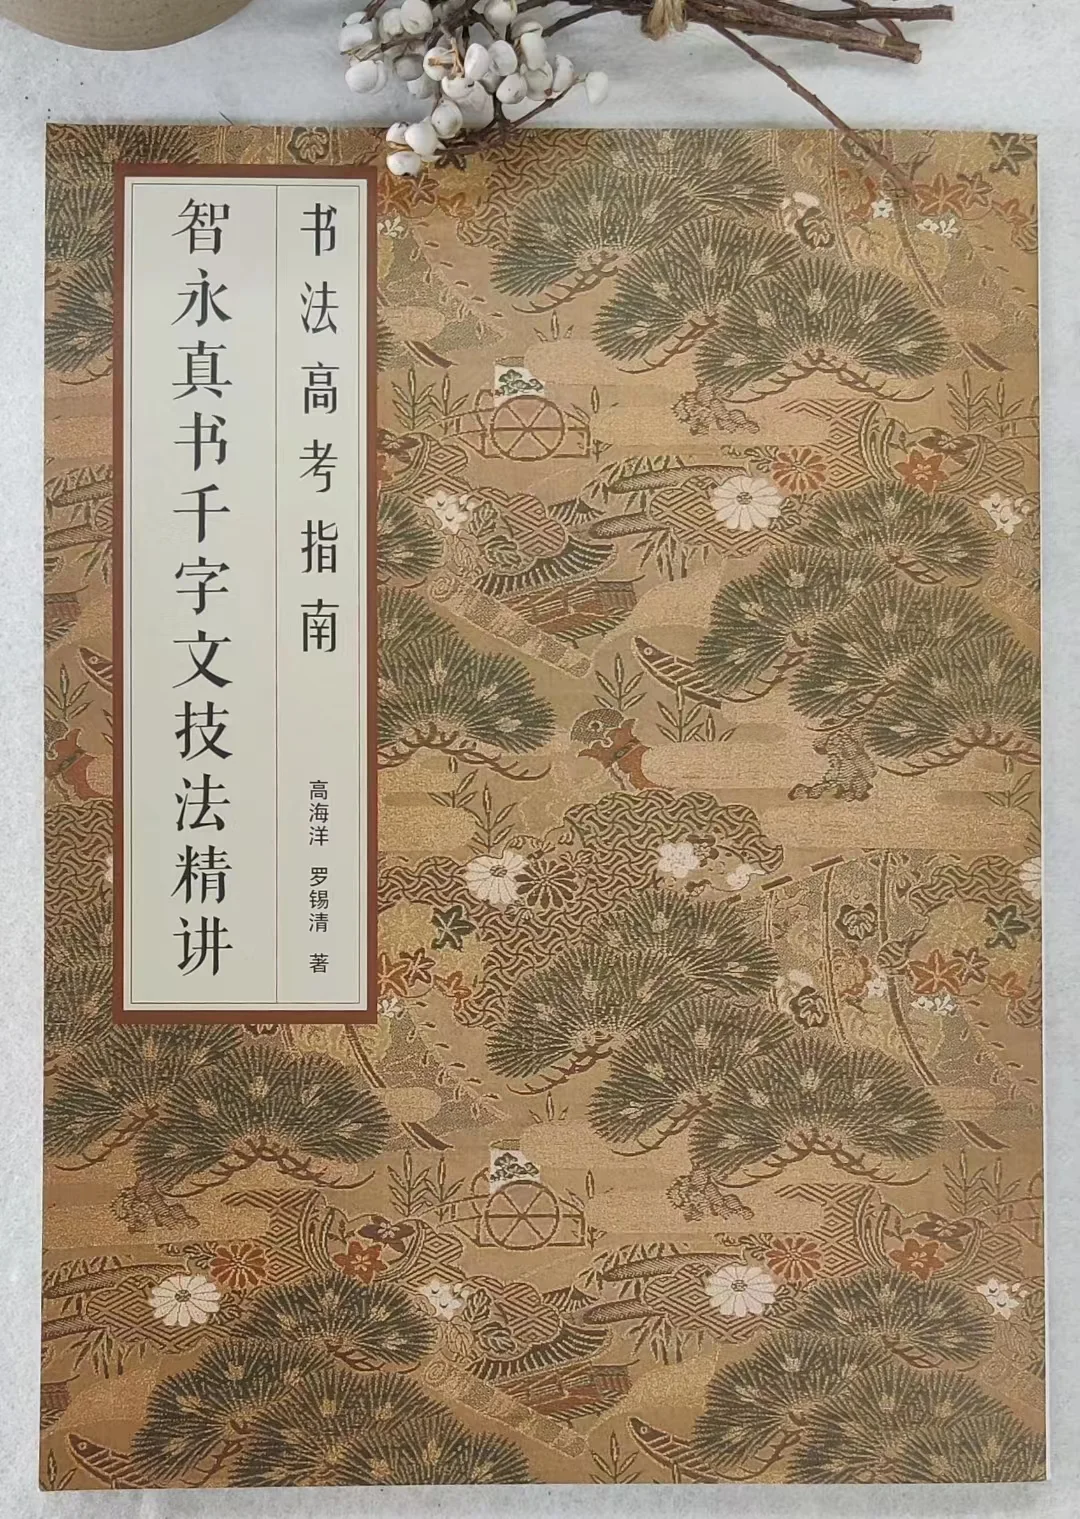 书法高考指南
高海洋 罗锡清 著
智永真书千字文技法精讲